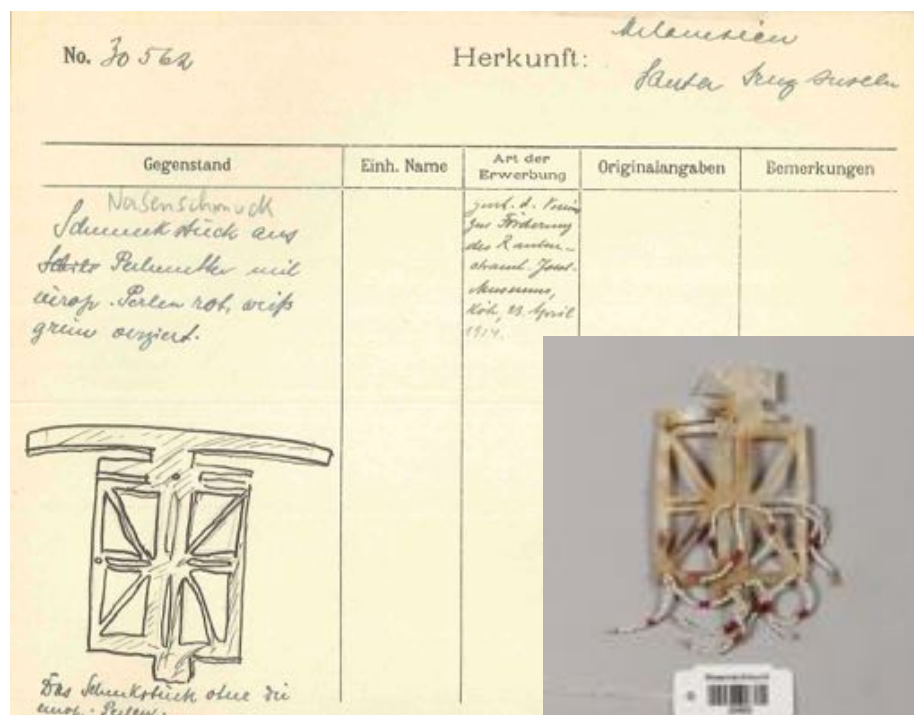 No. 30562
Herkunft:
Melanesien
Santa Cruz Inseln
Gegenstand
Einh. Name
Art der
Erwerbung
Originalangaben
Bemerkungen
Nasenschmuck
Schmuckstück aus
Perlmutter mit
europ. Perlen rot, weiß
grün verziert.
d. Verein
zur Förderung
des Rauten-
strauch-Joest-
Museums,
Köln, 23. April
1914.
Das Schmuckstück ohne die
europ. Perlen.